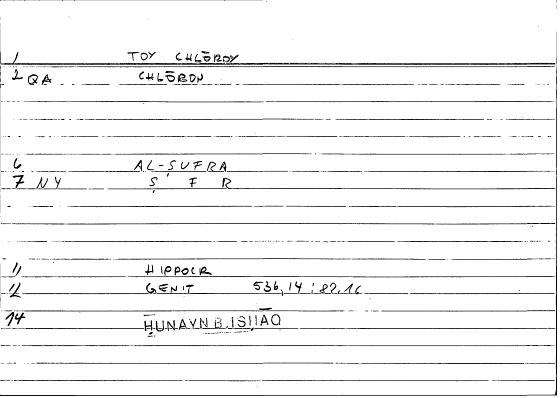 1 TOY CHLŌRОY
2 QA CHLŌRОN
6 AL-ṢUFRA
7 NY Ṣ F R
11 HIPPOCR
12 GENIT 536,14 : 82.16
14 ḤUNAYN B. ISḤĀQ